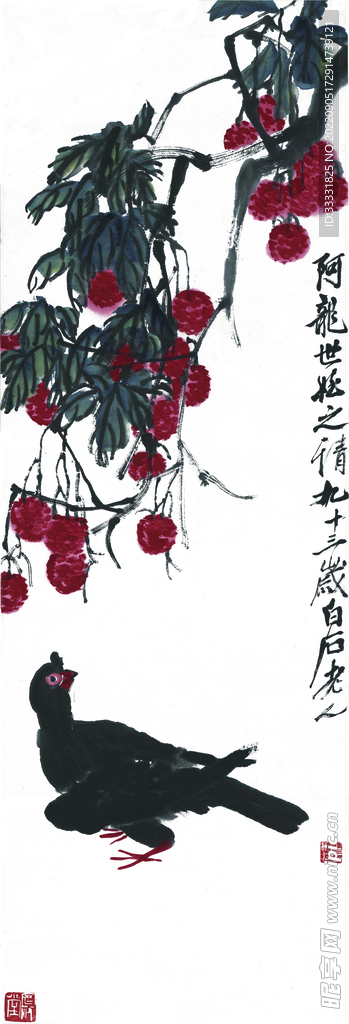 阿龍世姪之清九十三歲白石老人
ID:33331825 NO:20220905172914739121
昵享网 www.nipic.cn